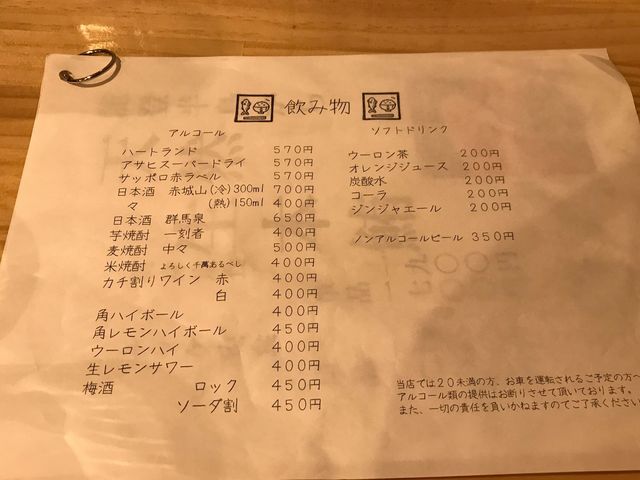 飲み物
アルコール
ハートランド 570円
アサヒスーパードライ 570円
サッポロ赤ラベル 570円
日本酒 赤城山(冷)300ml 700円
々 (熱)150ml 400円
日本酒 群馬泉 650円
芋焼酎 一刻者 400円
麦焼酎 中々 500円
米焼酎 よろしく千萬あるべし 400円
カチ割りワイン 赤 400円
白 400円
角ハイボール 400円
角レモンハイボール 450円
ウーロンハイ 400円
生レモンサワー 400円
梅酒 ロック 450円
ソーダ割 450円
ソフトドリンク
ウーロン茶 200円
オレンジジュース 200円
炭酸水 200円
コーラ 200円
ジンジャエール 200円
ノンアルコールビール 350円
当店では20未満の方、お車を運転されるご予定の方へ
アルコール類の提供はお断りさせて頂いております。
また、一切の責任を負いかねますのでご了承ください